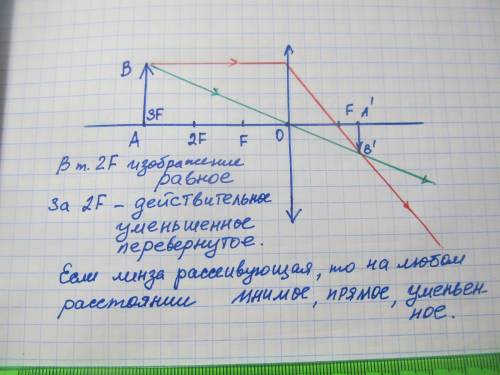 B
3F
F A'
A 2F F O
B'
В т. 2F изображение
равное
За 2F – действительное
уменьшенное
перевернутое.
Если линза рассеивующая, то на любом
расстоянии мнимое, прямое, уменьшен
ное.